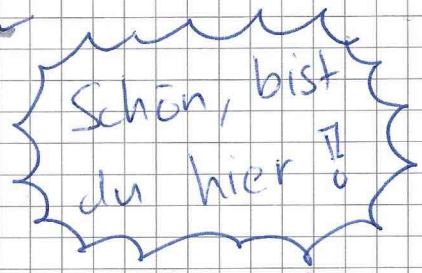 Schön, bist
du hier!